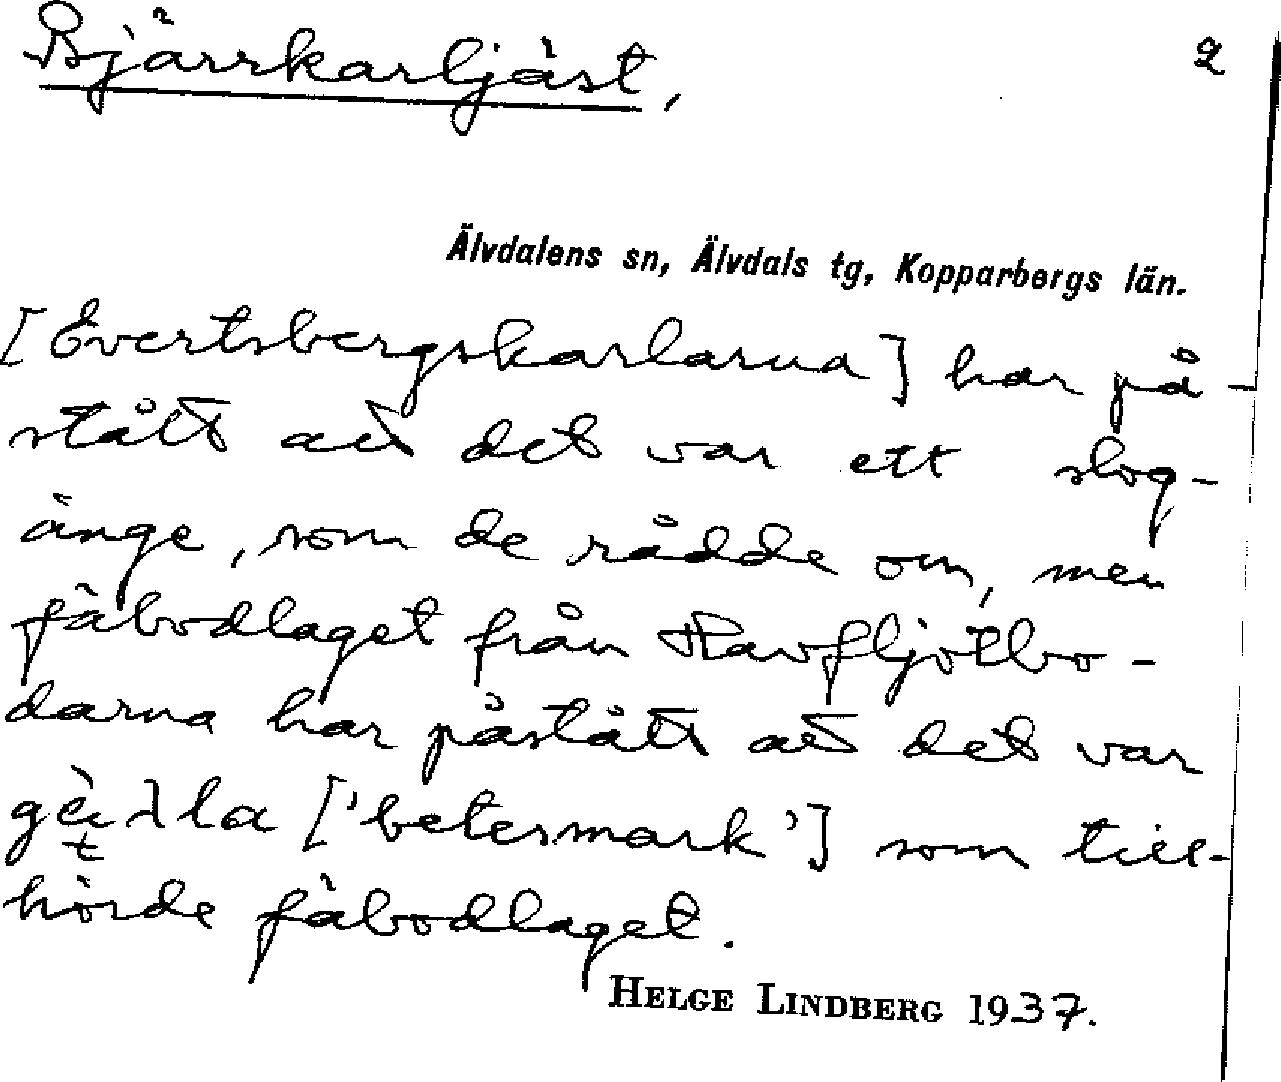 Bjärrkarljäst, 2
Älvdalens sn, Älvdals tg, Kopparbergs län.
[Evertsbergskarlarna] har på-
stått att det var ett slog-
änge, som de rådde om, men
fäbodlaget från Ravfljötbo-
darna har påstått att det var
['betesmark'] som till-
hörde fäbodlaget.
HELGE LINDBERG 1937.